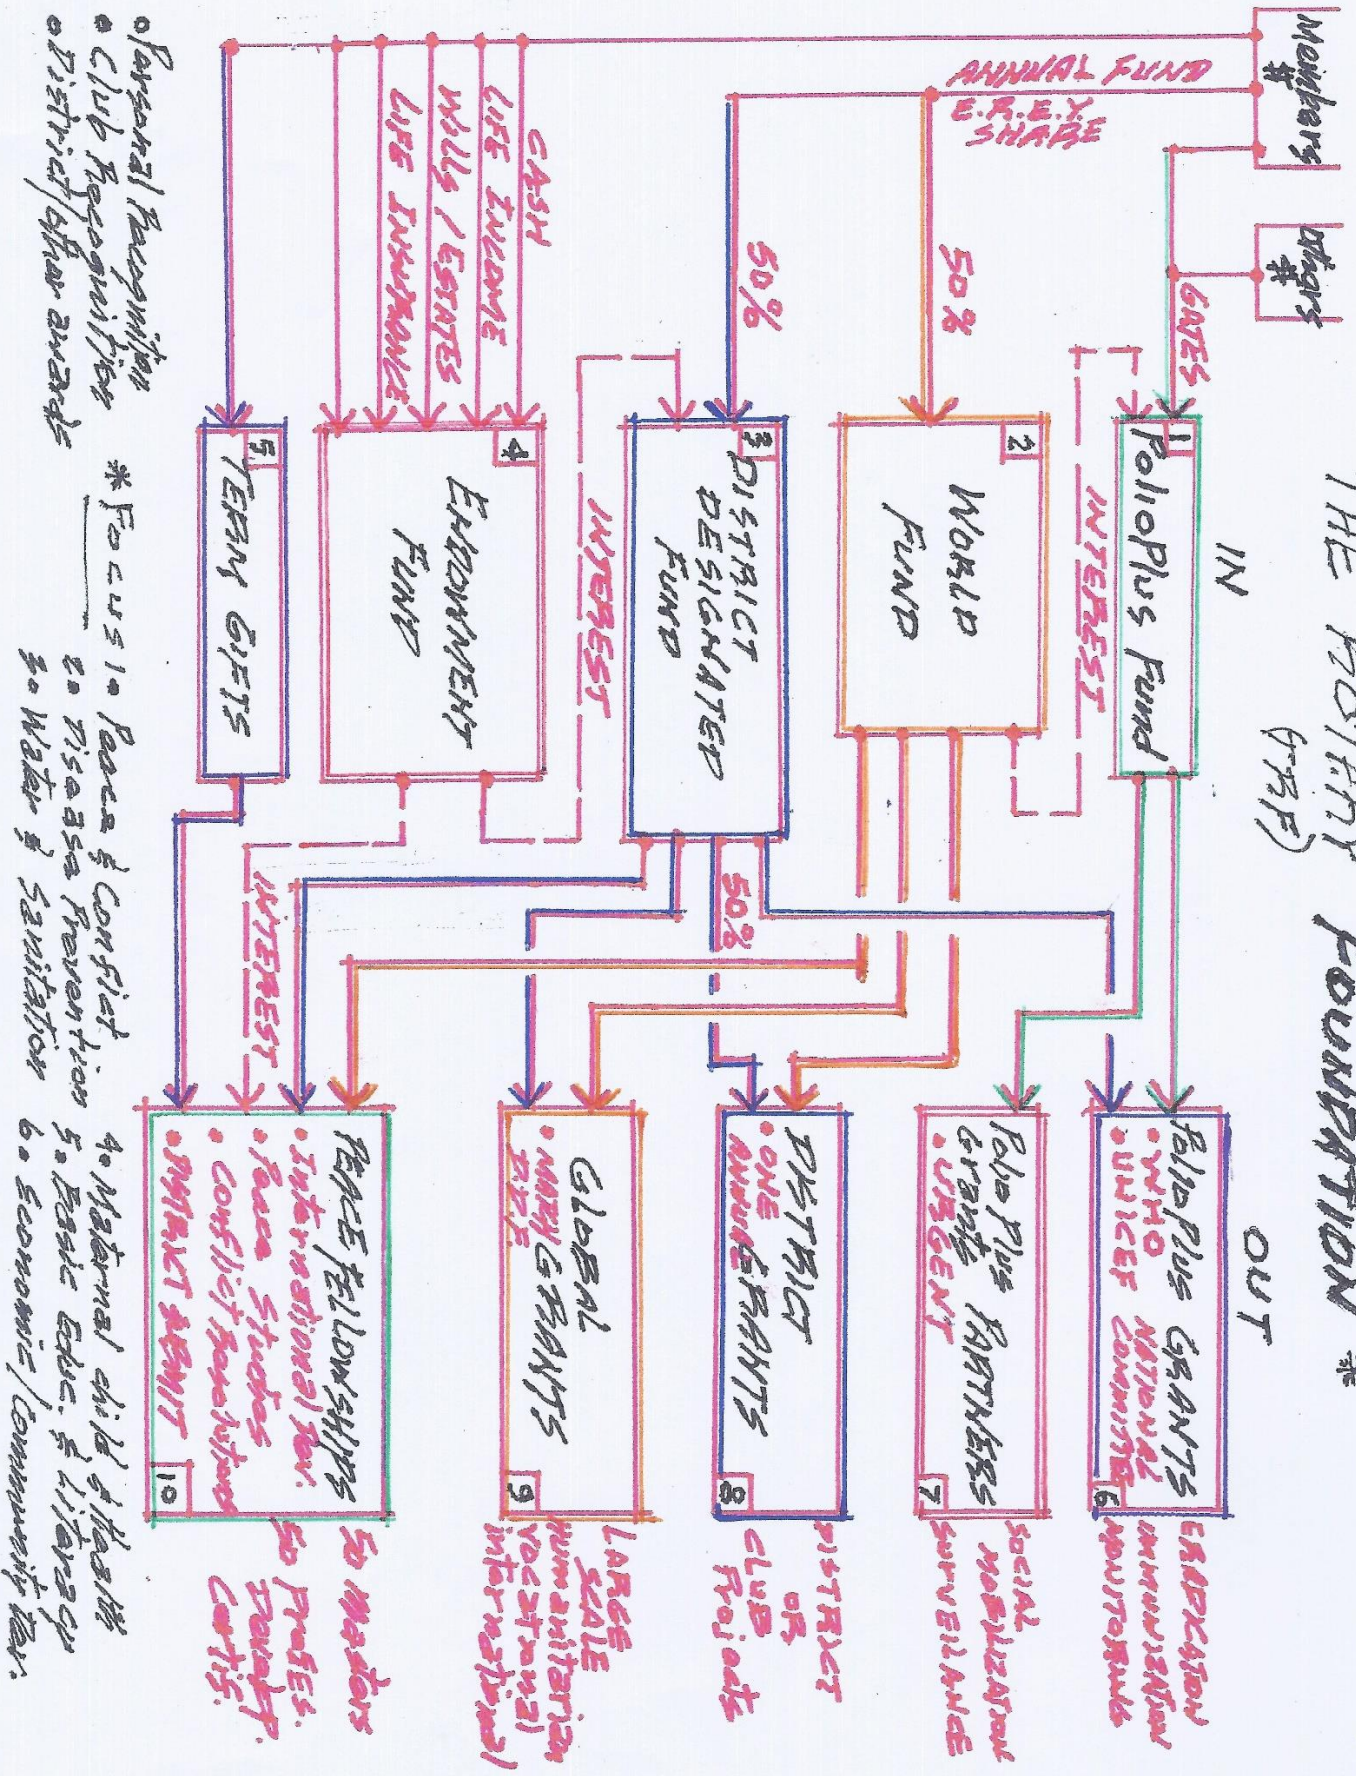 THE ROTARY FOUNDATION *
(TRF)
IN
OUT
Members
#
Others
#
ANNUAL FUND
E.R.E.Y.
SHARE
GATES
50%
50%
CASH
LIFE INCOME
WILLS / ESTATES
LIFE INSURANCE
1
PolioPlus Fund
INTEREST
2
WORLD
FUND
3
DISTRICT
DESIGNATED
FUND
INTEREST
4
ENDOWMENT
FUND
5
TERM GIFTS
50%
INTEREST
PolioPlus GRANTS
• WHO
• UNICEF
NATIONAL
COMMITEE
6
ERADICATION
IMMUNIZATION
MONITORING
PolioPlus PARTNERS
Grants
• URGENT
7
SOCIAL
MOBILIZATION
SURVEILANCE
DISTRICT
GRANTS
• ONE
ANNUAL
8
DISTRICT
OR
CLUB
Projects
GLOBAL
GRANTS
• MANY
9
LARGE
SCALE
Humanitarian
VOCATIONAL
International
PEACE FELLOWSHIPS
• International
• Peace Studies
• Conflict Resolutions
10
50 Masters
50 Profes.
Develop.
Certif.
• Personal Recognition
• Club Recognition
• District/other awards
* Focus
1. Peace & Conflict
2. Disease Prevention
3. Water & Sanitation
4. Maternal child & Health
5. Basic Educ. & Literacy
6. Economic/Community Dev.